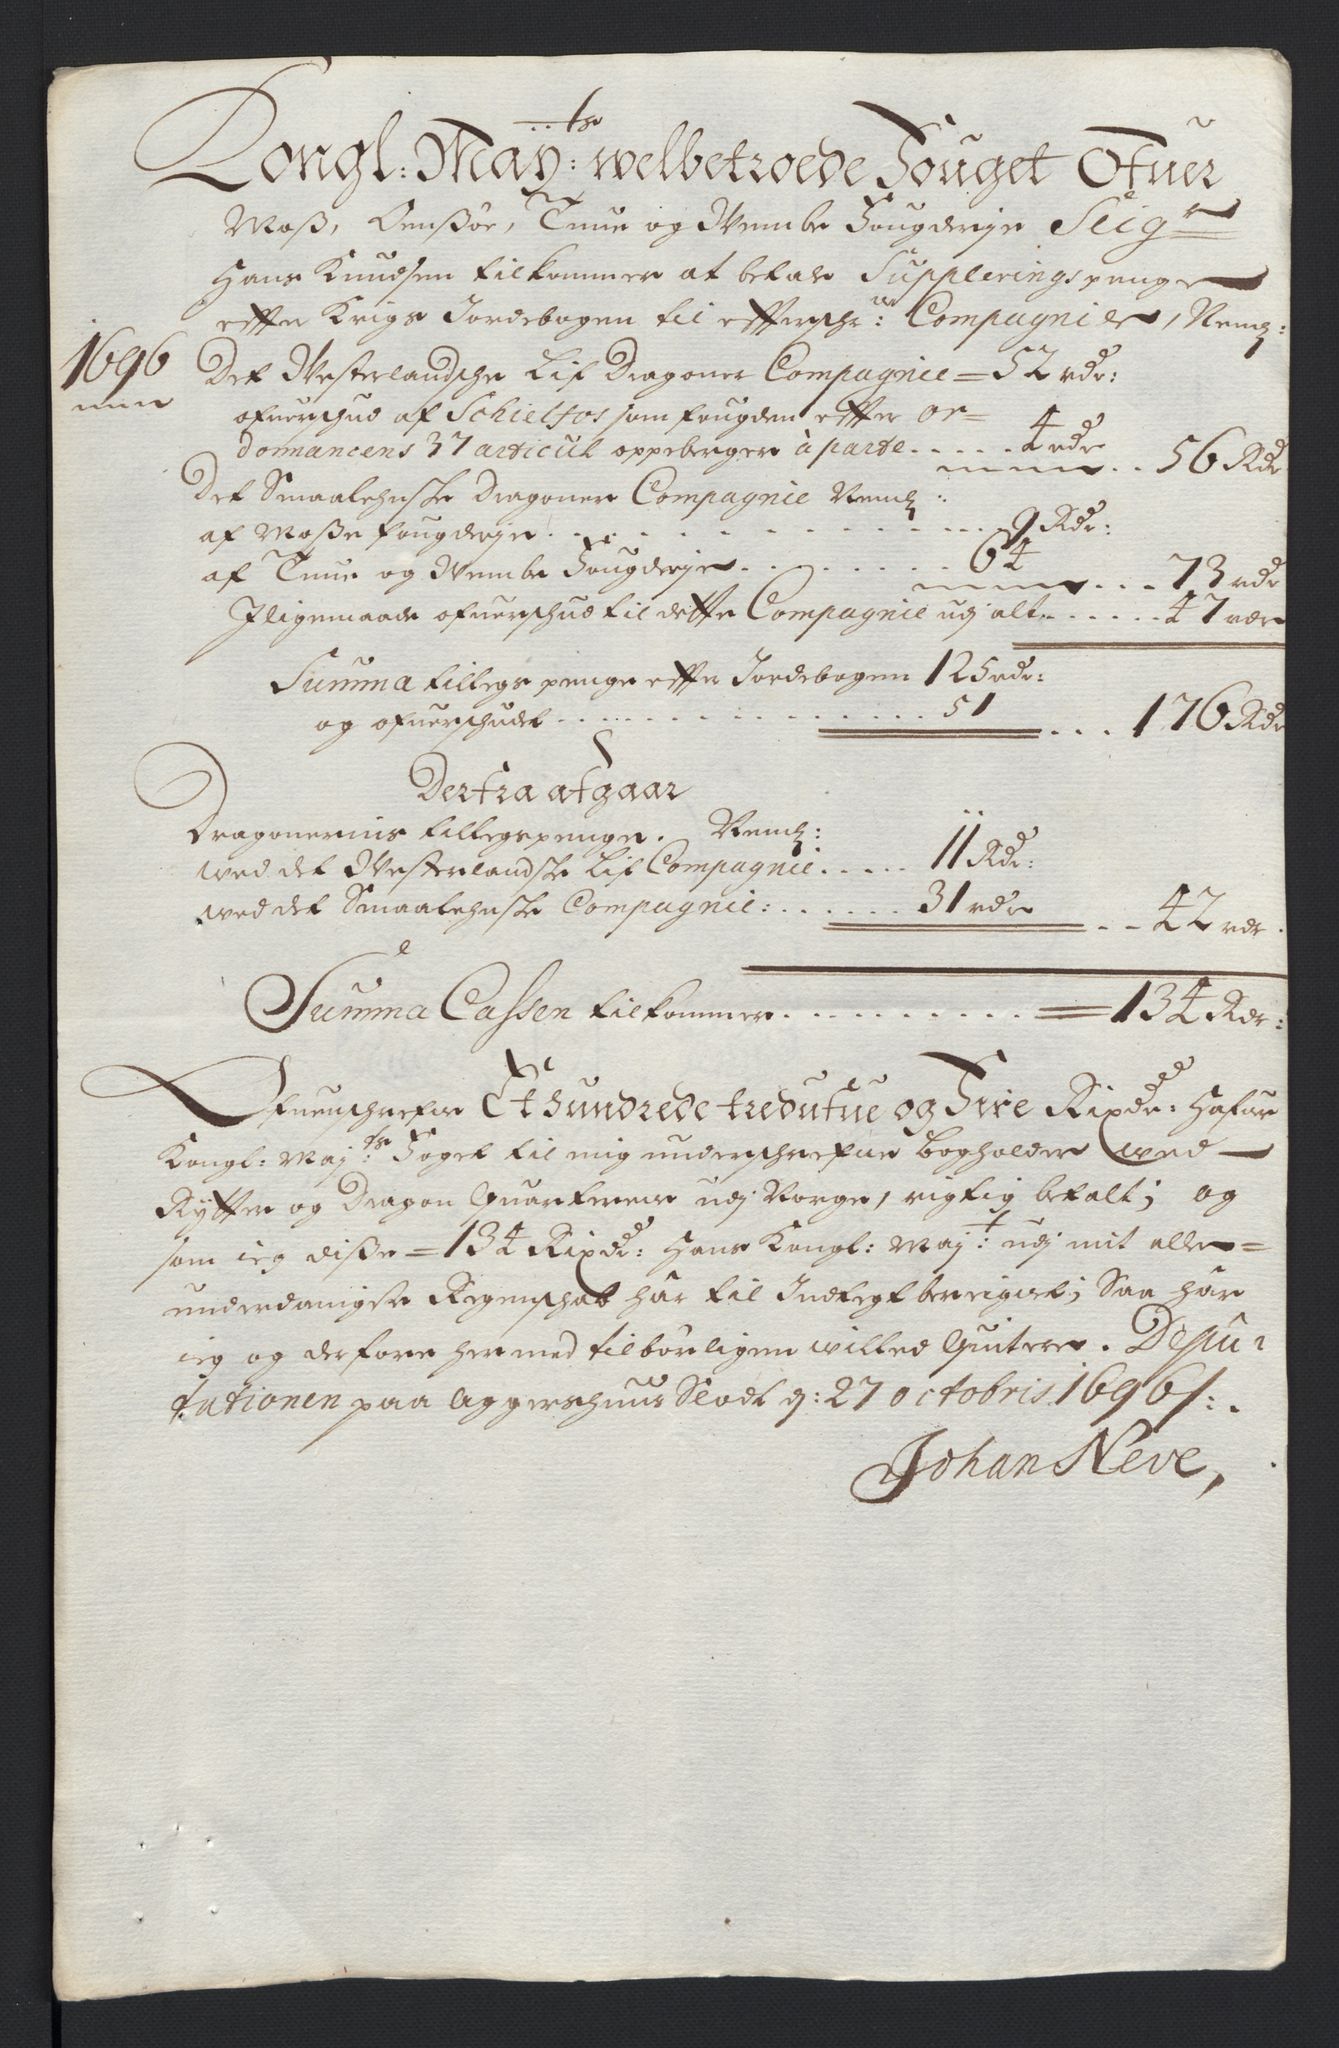 Kongl: May:ts welbetroede Fouget Ofuer
Moss, Onsøe, Tune og Wembe Fougderie Seigr
Hans Knudsen tilkommer at betale Suppleringspenge
effter Krigs Jordebogen til effterschr:ne Compagnier, Neml:
1696
Det Westerlandsche Lif Dragoner Compagnie = 52 rdr:
ofuerschud af som fougden effter or=
donnancens 37 articul oppeberger à parte..... 4 rdr
.. 56 Rdr
Det Smaalehnske Dragoner Compagnie Neml:
af Mosse fougderie. . . . . . . . 9 Rdr:
af Tune og Wembe Fougderie. . . . . . . . 64
... 73 rdr
Jligemaade ofuerschud til dette Compagnie udj alt. . . . . . 47 rdr
Summa tillegs penge effter Jordebogen 125 rdr:
og ofuerschudet . . . . . . . . . . 51
... 176 Rdr
Derfra afgaar
Dragonernis tillegspenge. Neml:
wed det Westerlandske Lif Compagnie. . . . . 11 Rdr:
wed det Smaalehnske Compagnie: . . . . . . 31 rdr
.. 42 rdr.
Summa Cassen tilkommer. . . . . . . . . = 134 Rdr:
Ofuenschrefne Et Hundrede tredutue og Fire Rixdr: Hafuer
Kongl: May:ts Foget til mig underschrefne Bogholder wed
Rytter og Dragon Quarterer udj Norge, rigtig betalt; og
som ieg disse = 134 Rixdr: Hans Kongl: May:t udj mit aller=
underdanigste Regenschab har til Indtegt bereignet; Saa har
ieg og derfore hermed tilbørligen willed Quitere. Depu=
tationen paa Aggershuus Slodt d: 27 octobris 1696 /: .
Johan Neve,